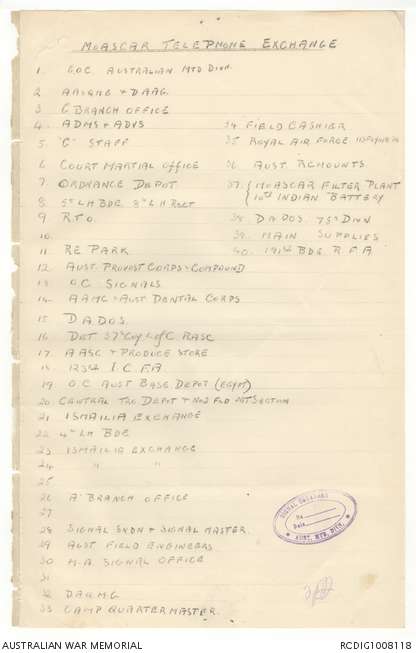 MOASCAR TELEPHONE EXCHANGE
1. G.O.C. AUSTRALIAN MTD DIVN.
2 AA&QMG & DAAG.
3 G BRANCH OFFICE
4. ADMS & ADVS
5 "G" STAFF
6 COURT MARTIAL OFFICE
7. ORDNANCE DEPOT
8 5th LH BDE 8th LH REGT
9 R.T.O.
10.
11 RE PARK
12 AUST. PROVOST CORPS & COMPOUND
13 O.C. SIGNALS
14 AAMC & AUST DENTAL CORPS
15 DADOS.
16 DET 37th Coy L of C RASC
17 AASC & PRODUCE STORE
18 123rd I.C.F.A
19 O.C. AUST BASE DEPOT (EGYPT)
20 CAMTRAL DEPOT & No2 FLD SECTION
21 ISMAILIA EXCHANGE
22 4th LH BDE
23 ISMAILIA EXCHANGE
24 " "
25
26 A' BRANCH OFFICE
27
28 SIGNAL SQDN & SIGNAL MASTER.
29 AUST FIELD ENGINEERS
30 SIGNAL OFFICE
31
32 DAQMG
33 CAMP QUARTERMASTER.
34 FIELD CASHIER
35 ROYAL AIR FORCE
36 AUST. REMOUNTS
37. { MOASCAR FILTER PLANT
10th INDIAN BATTERY
38. DADOS. 75th DIVN
39. MAIN SUPPLIES
40. BDE. R.F.A
SIGNAL SQUADRON
No
Date
AUST. MTD. DIVN.
AUSTRALIAN WAR MEMORIAL
RCDIG1008118